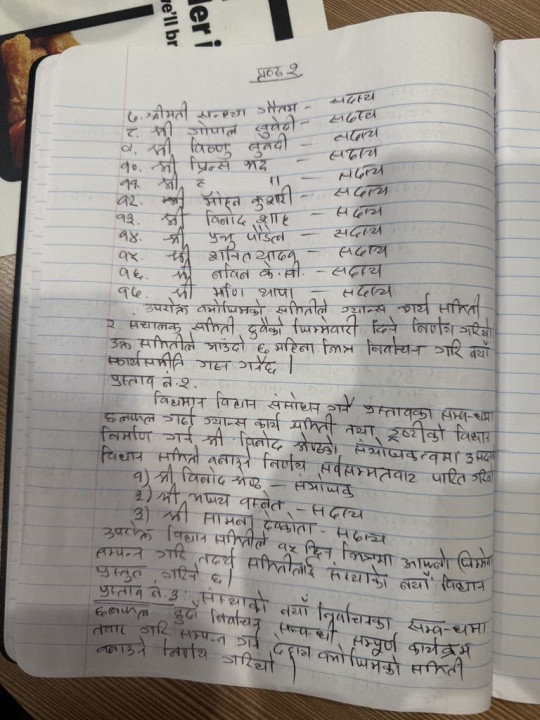 der i
we'll br
पृष्ठ २
७. श्रीमती सन्ध्या गौतम - सदस्य
८. श्री गोपाल सुवेदी - सदस्य
९. श्री विष्णु सुवेदी - सदस्य
१०. श्री प्रिन्स भट्ट - सदस्य
११. श्री " - सदस्य
१२. श्री मोहन कुमारी - सदस्य
१३. श्री विनोद शाह - सदस्य
१४. श्री प्रभु पौडेल - सदस्य
१५. श्री शान्ति यादव - सदस्य
१६. श्री नविन के.सी. - सदस्य
१७. श्री मणि थापा - सदस्य
उपरोक्त बमोजिमको समितीले ग्यान्स कार्य समिती
र संचालक समिती दुवैको जिम्मेवारी दिने निर्णय गरियो।
उक्त समितीले आउंदो ६ महिना भित्र निर्वाचन गरि नयाँ
कार्यसमिति गठन गर्नेछ।
प्रस्ताव नं. २.
विद्यमान विधान संसोधन गर्ने प्रस्तावका सम्बन्धमा
छलफल गर्दा ग्यान्स कार्य समिती तथा ट्रष्टीको विधान
निर्माण गर्न श्री विनोद श्रेष्ठको संयोजकत्वमा ३ सदस्य
विधान समिती बनाउने निर्णय सर्वसम्मतवाट पारित गरियो
१) श्री विनोद श्रेष्ठ - संयोजक
२) श्री अजय बस्नेत - सदस्य
३) श्री सामना देवकोटा - सदस्य
उपरोक्त विधान समितीले १५ दिन भित्रमा आफ्नो जिम्मेवारी
सम्पन्न गरि तदर्थ समितीलाई संस्थाको नयाँ विधान
प्रस्तुत गरिने छ।
प्रस्ताव नं. ३: संस्थाको नयाँ निर्वाचनका सम्बन्धमा
छलफल हुदाँ निर्वाचन सम्बन्धी सम्पूर्ण कार्यक्रम
तयार गरि सम्पन्न गर्न देहाय बमोजिमको समिती
बनाउने निर्णय गरियो।